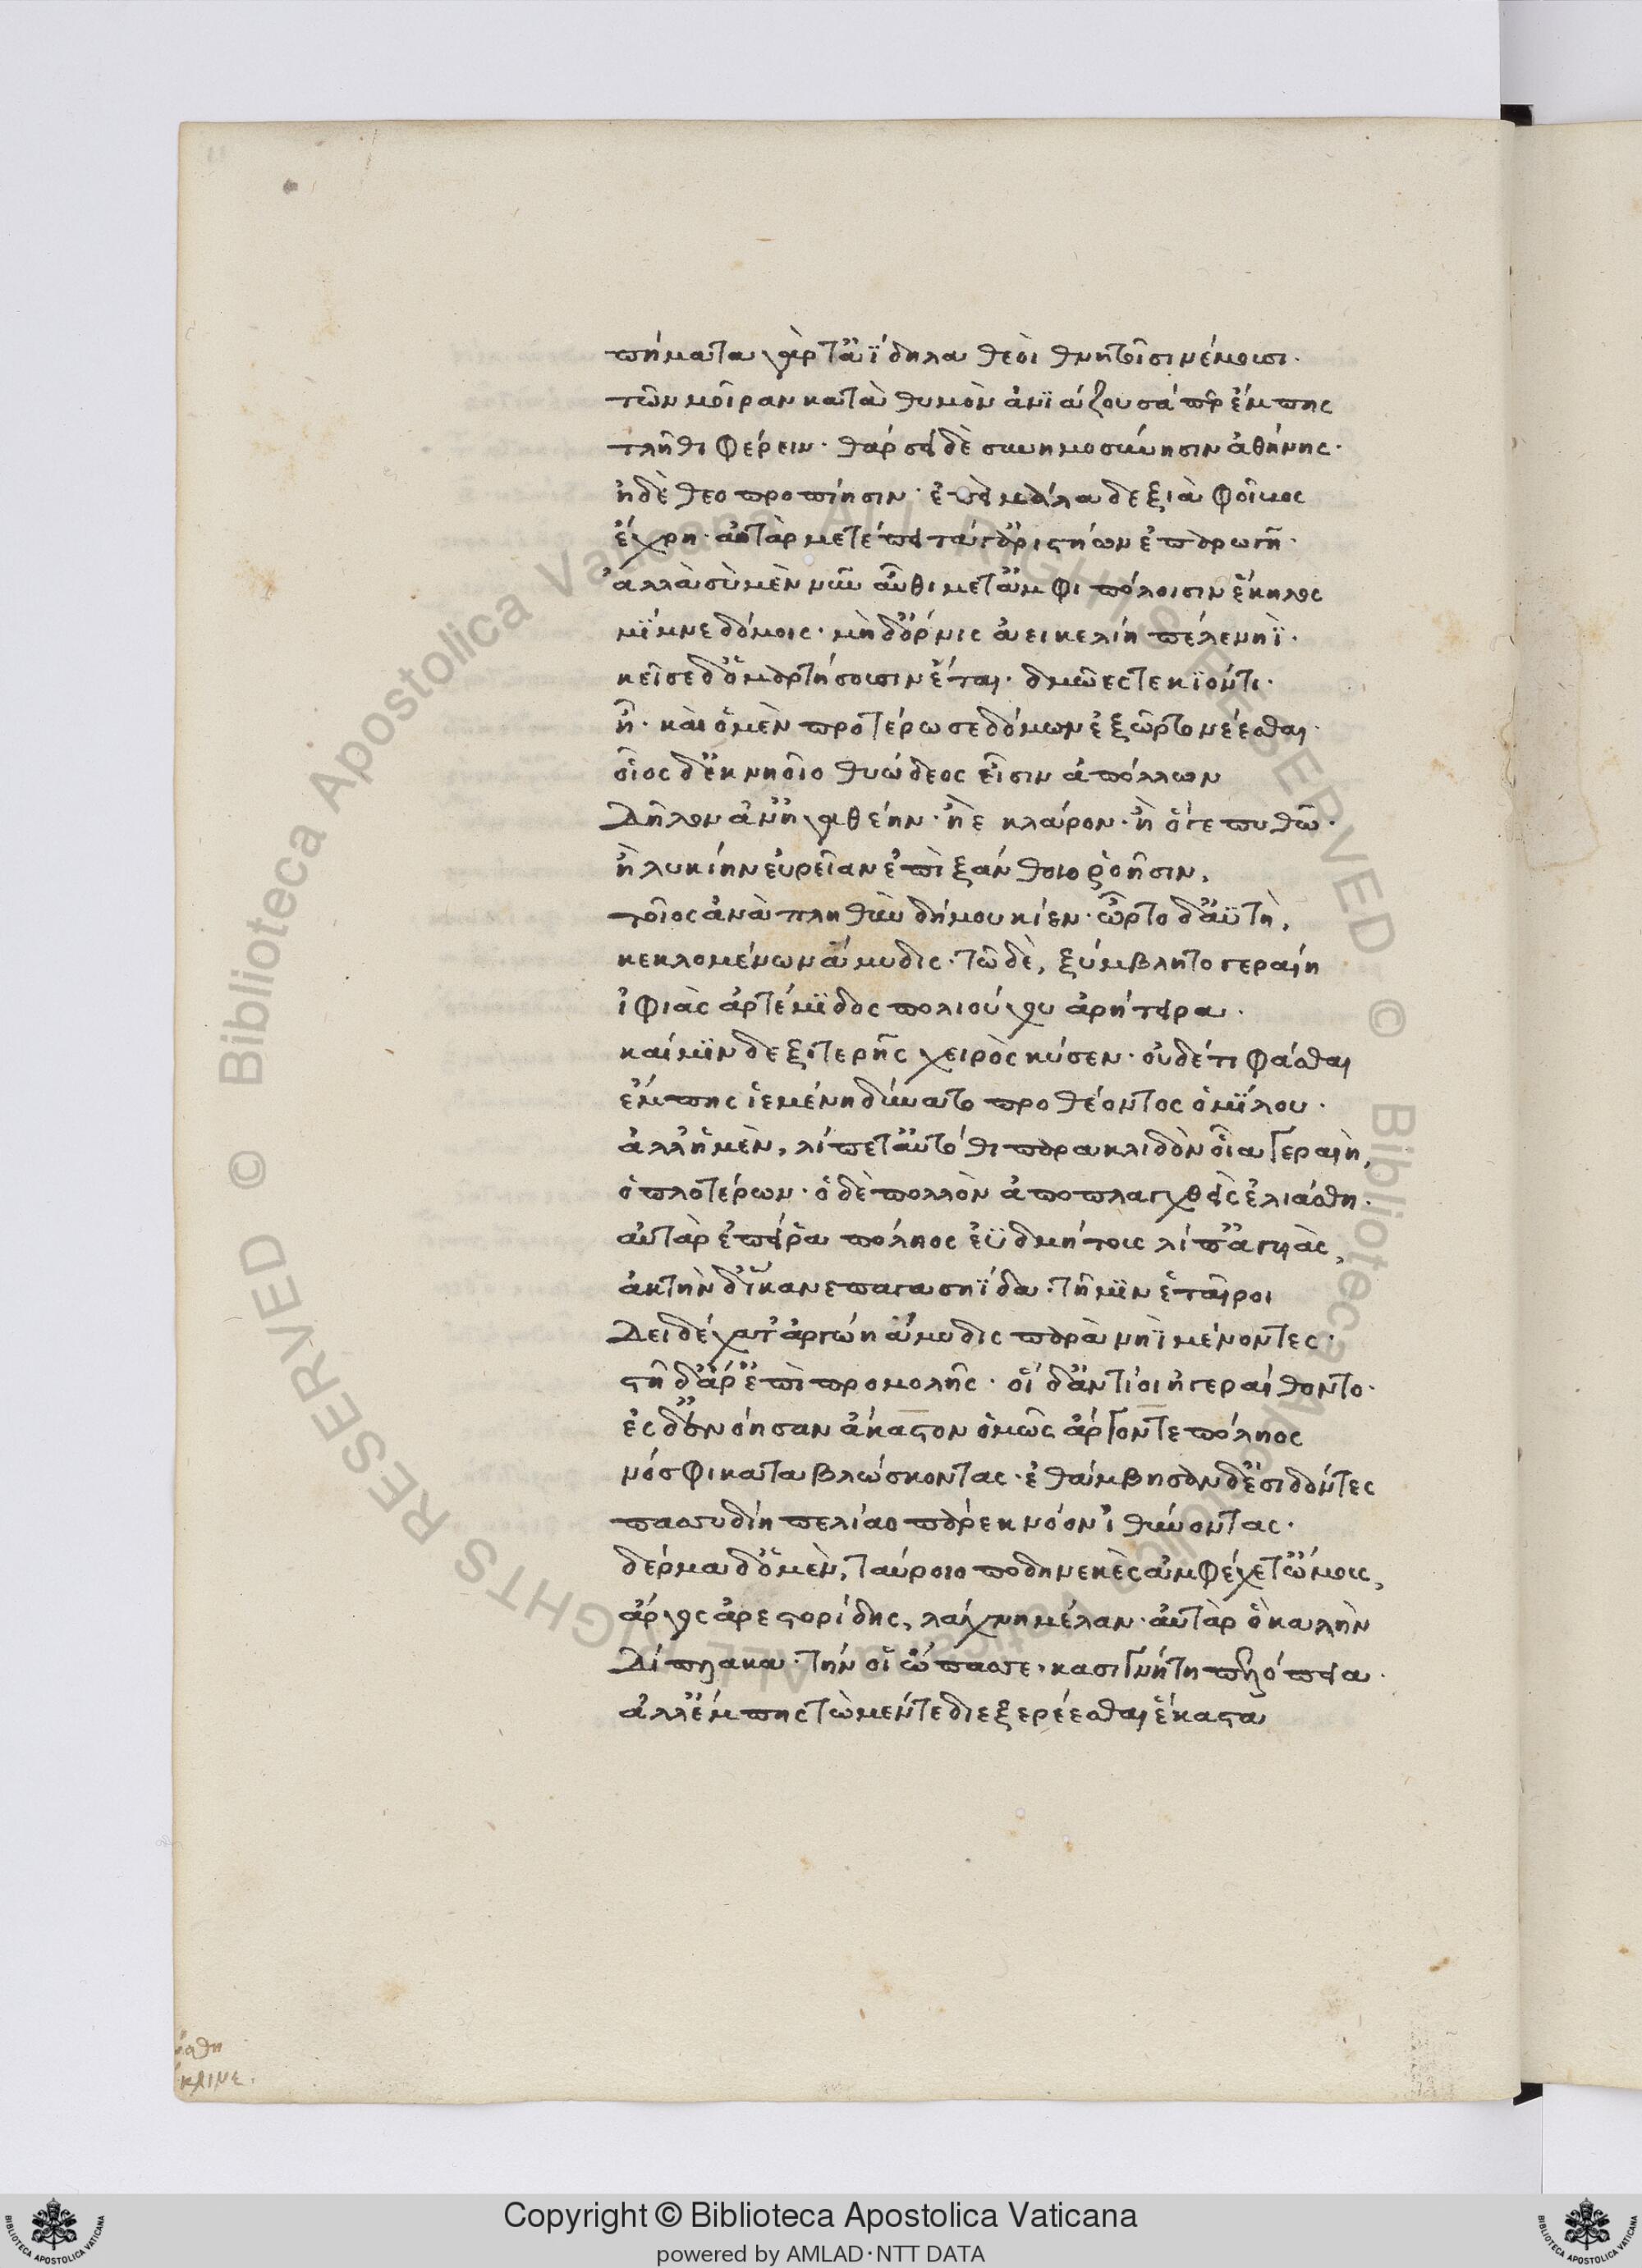 πήματα γάρ τ' ἀΐδηλα θεοὶ θνητοῖσι νέμουσι·
τῶν μοῖραν κατὰ θυμὸν ἀνϊάζουσά περ ἔμπης
τλῆθι φέρειν· θάρσει δὲ συνημοσύνησιν ἀθήνης·
ἠδὲ θεοπροπίησιν· ἐπεὶ μάλα δεξιὰ φοῖβος
ἔχρη· ἀτὰρ μετέπειτά γ' ἀριστήων ἐπαρωγῆ·
ἀλλὰ σὺ μὲν νῦν αὖθι μετ' ἀμφιπόλοισιν ἕκηλος
μΐμνε δόμοις· μὴ δ' ὄρνις ἀεικελίη πέλε νηῒ·
κεῖσε δ' ὁμαρτήσουσιν ἔται· δμῶές τε κϊόντι·
ἦ· καὶ ὁ μὲν προτέρωσε δόμων ἐξῶρτο νέεσθαι·
οἷος δ' ἐκ νηοῖο θυώδεος εἶσιν ἀπόλλων
Δῆλον ἀν' ἠγαθέην· ἠὲ κλάρον· ἢ ὅγε πυθῶ·
ἢ λυκίην εὐρεῖαν ἐπὶ ξάνθοιο ῥοῆσιν,
τοῖος ἀνὰ πληθὺν δήμου κίεν· ὦρτο δ' ἀϋτὴ,
κεκλομένων ἄμυδις· τῶ δὲ, ξύμβλητο γεραιὴ
ἰφιὰς ἀρτέμϊδος πολιούχου ἀρήτειρα·
καί μϊν δεξιτερῆς χειρὸς κύσεν· οὐδέ τι φάσθαι
ἔμπης ἱεμένη δύνατο προθέοντος ὁμΐλου·
ἀλλ' ἡ μὲν, λίπετ' αὐτόθι παρακλιδὸν οἷα γεραιὴ,
ὁπλοτέρων· ὁ δὲ πολλὸν ἀποπλαγχθεὶς ἐλιάσθη·
αὐτὰρ ἐπεί ῥα πόληος ἐϋδμήτους λίπ' ἀγυιὰς,
ἀκτὴν δ' ἵκανε παγασηΐδα· τῆ μϊν ἑταῖροι
Δειδέχατ' ἀργώη ἄμυδις παρὰ νηῒ μένοντες·
στῆ δ' ἄρ' ἐπὶ προμολῆς· οἱ δ' ἀντίοι ἠγεραίθοντο·
ἐς δ' ἐνόησαν ἄκαστον ὁμῶς ἄργον τε πόληος
νόσφι καταβλώσκοντας· ἐθάμβησαν δ' ἐσιδόντες
πασυδίη πελίαο παρὲκ νόον ἰθύοντας·
δέρμα δ' ὁ μὲν, ταύροιο ποδηνεκὲς ἀμφέχετ' ὤμους,
ἄργος ἀρεστορίδης, λάχνη μέλαν· αὐτὰρ ὁ καλὴν
Δίπλακα· τήν οἱ ὤπασσε, κασιγνήτη πηλόπεια·
ἀλλ' ἔμπης τὼ μέν τε διεξερέεσθαι ἕκαστα
κλινε.